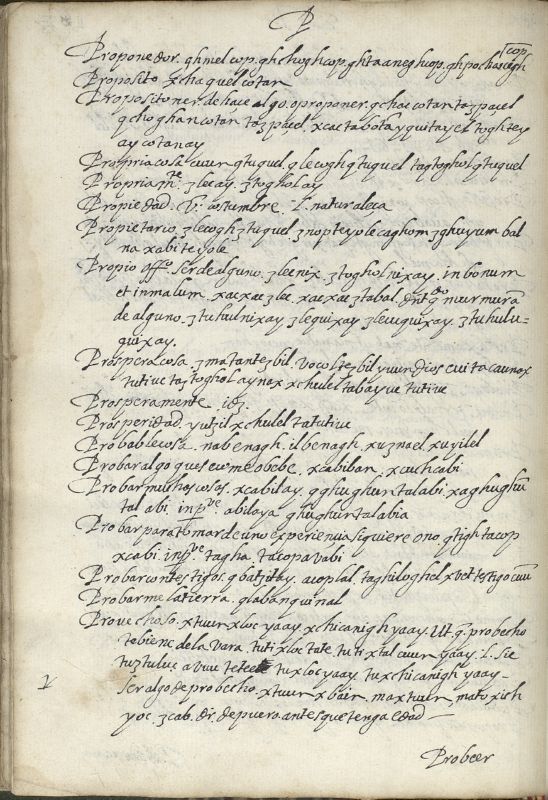 P
Proponedor. qhmel cop. qhchoghcop. qhtaaneghcop. qhpochaseigh cop
Proposito xchaquel cotan
Proposito ner. de hacer algo o proponer. qchac cotan taz paçel
qchoghan cotan taz paçel. xcac tabotay quitayel toghtey
ay cotanay
Propria cosa cuun qtuquel. qlecogh qtuquel taqtoghol qtuquel
Propriamte. zlecay. ztogholay
Propiedad. V. costumbre. l. naturaleça
Propietario. zlecogh ztuquel. znopteyole caghom zghuyum bal
na xabiteyole
Propio offo. ser de alguno. zleenix. ztogholnixay. in bonum
et in malum. xaexae zlee. xaexae ztabal. murmurā
de alguno. ztuhulnixay zlequixay. zlecuquixay. ztuhulu-
quixay.
Prospera cosa. zmatantezbil. vocoltezbil yuun dios cuitacaunox
tutive taztogholaynox xchulel tabayuc tutive
Prosperamente. idz.
Prosperidad. yutzil xchulel tatutive
Probable cosa. nabenagh. ilbenagh xuznael. xuyilel
Probar algo que se come o bebe. xcabiban. xcuchcabi
Probar muchas cosas. xcabilay. qghughuntalabi. xaghughū
talabi. impve. abilaya ghughuntalabia
Probar para tomar de uno experiencia si quiere o no. qtightacop
xcabi. impve tagha. tacopavabi
Probar con testigos. qbatzitay. acoplal. taghiloghel xvet testigo cuū
Probarme la tierra. qlabanquinal
Provechoso. xtuun xloc yaay xchicanigh yaay. Ut. q. probecho
te biene de la vara. tuti xloc tate. tuti xtal cuun yaay. l. sie
tuztuluc avuc tetee tuxloc yaay. tuxchicanigh yaay.
V ser algo de probecho. xtuun xbain. maxtuun. matoxich
yoc. zcab. dr. de puero antes que tenga edad
Probeer